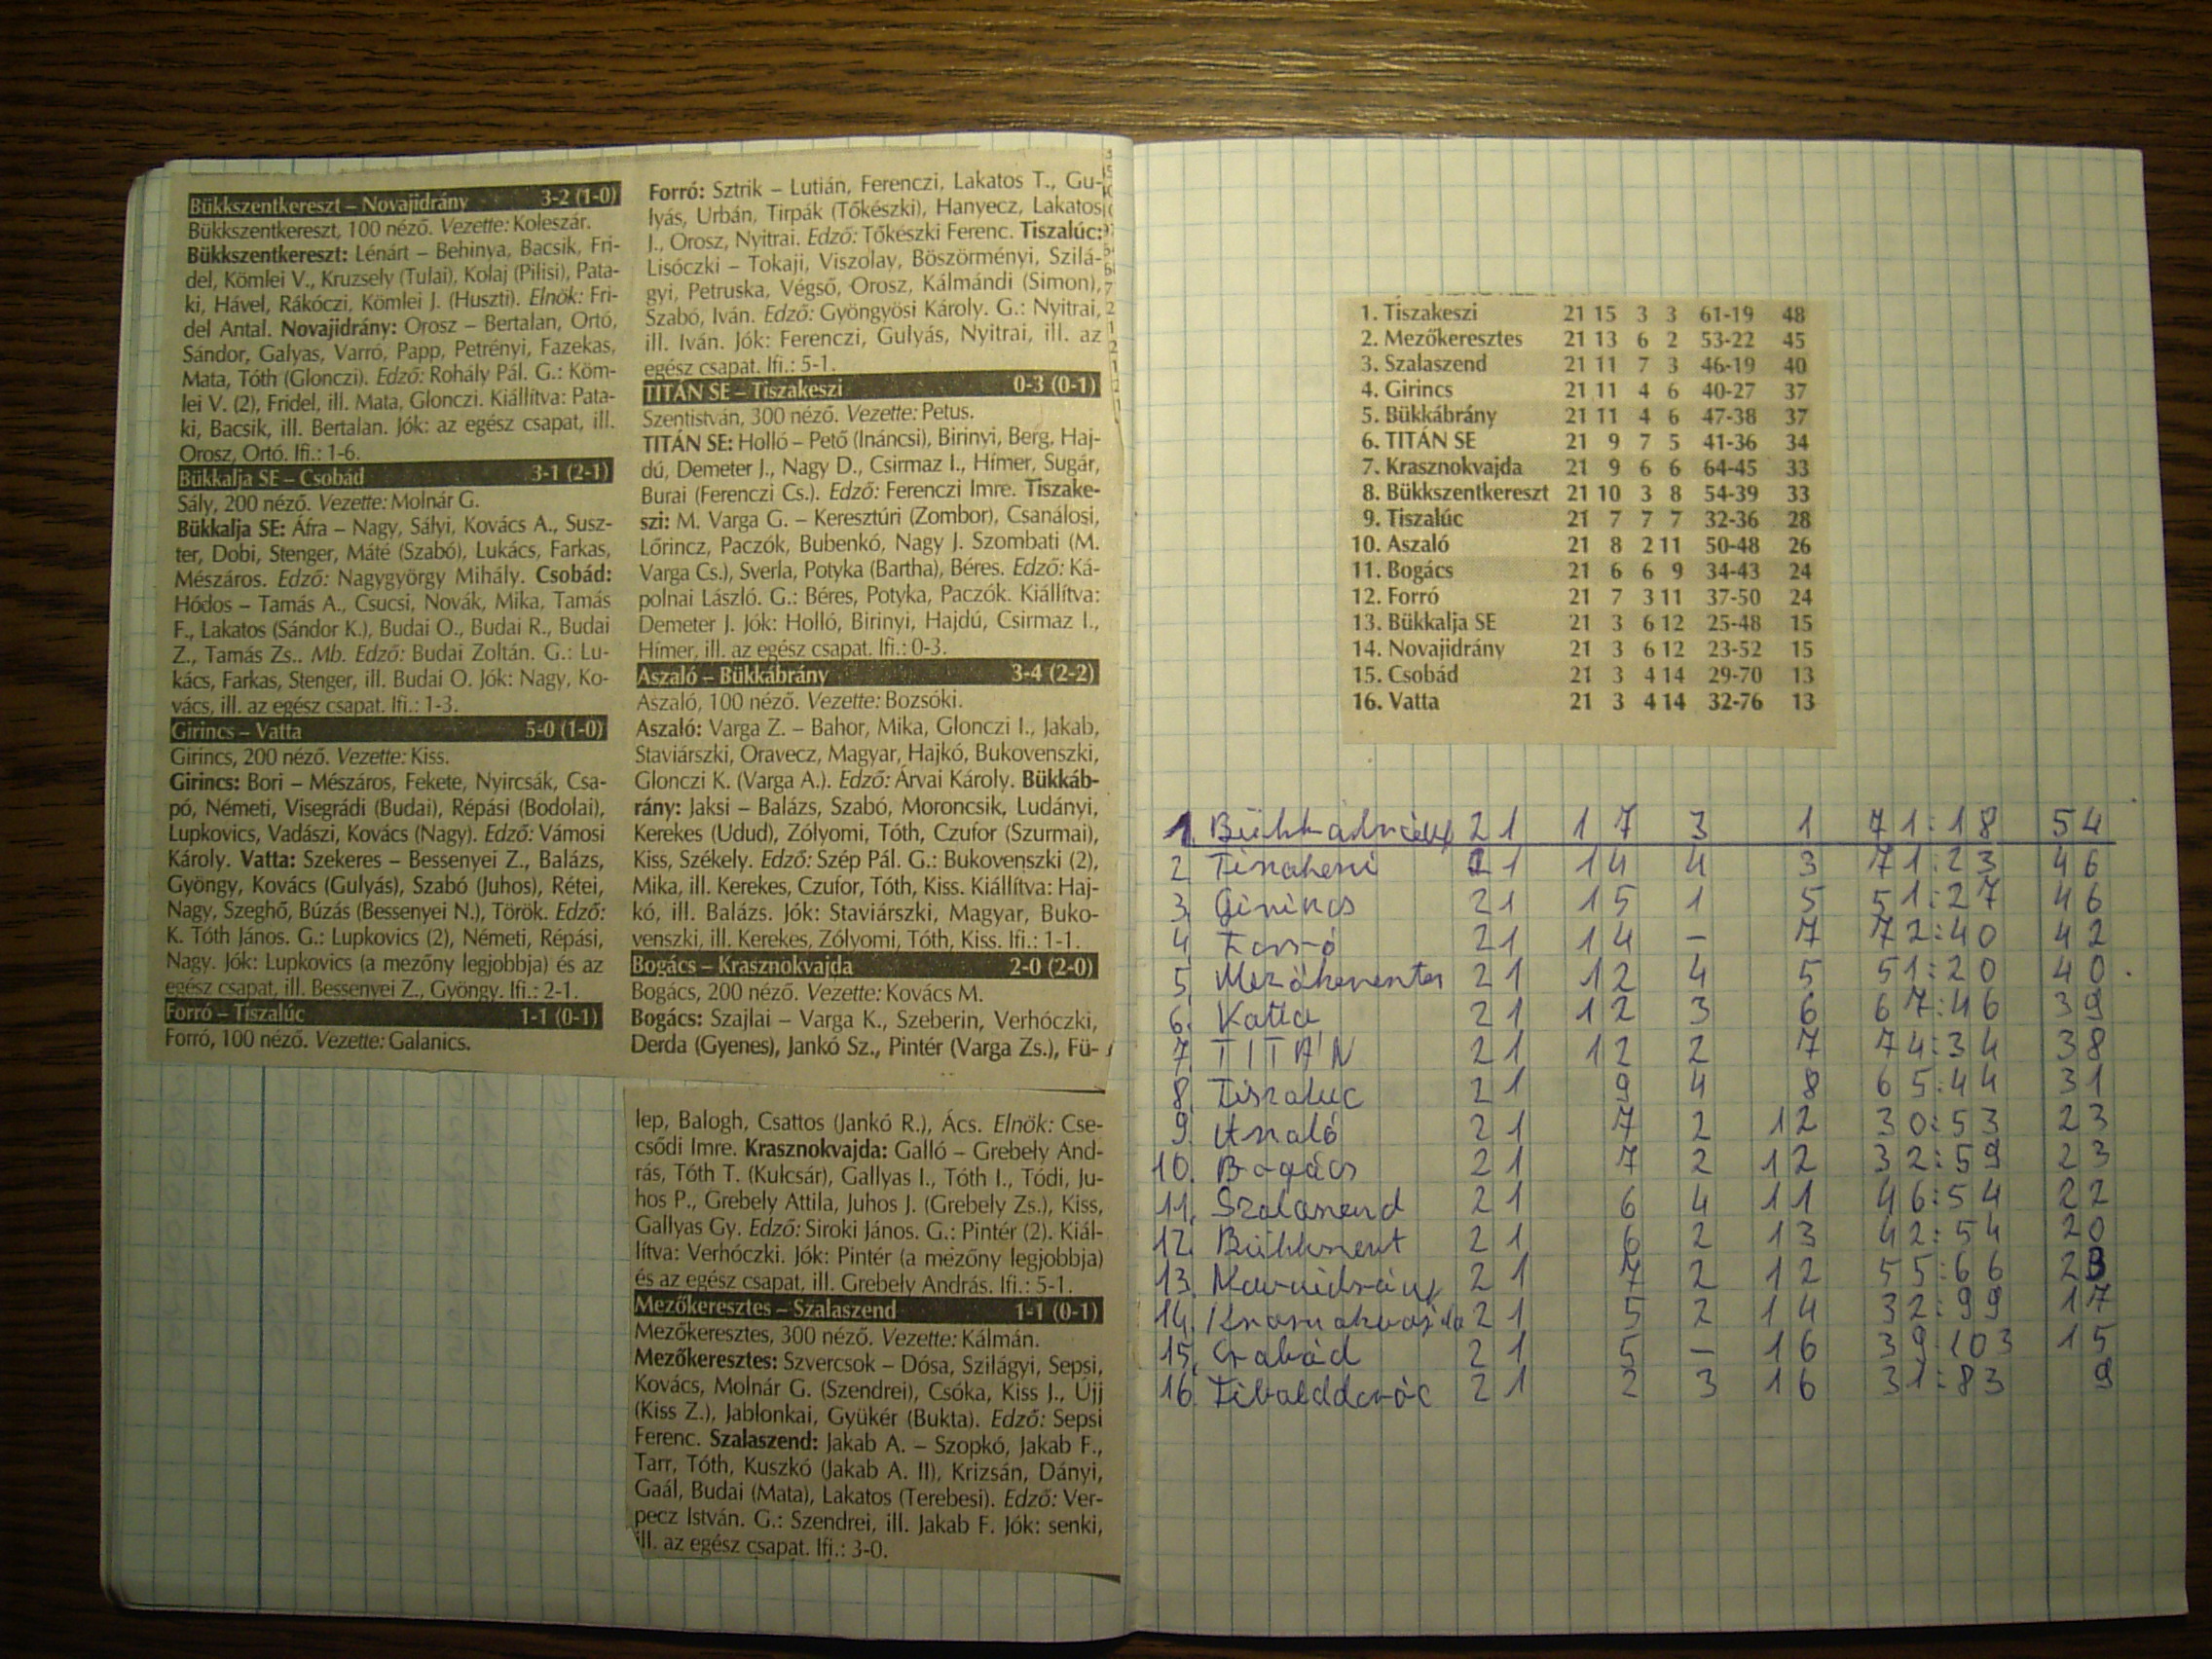 Bükkszentkereszt – Novajidrány 3-2 (1-0)
Bükkszentkereszt, 100 néző. Vezette: Koleszár.
Bükkszentkereszt: Lénárt – Behinya, Bacsik, Fri-
del, Kömlei V., Kruzsely (Tulai), Kolaj (Pilisi), Pata-
ki, Hável, Rákóczi, Kömlei J. (Huszti). Elnök: Fri-
del Antal. Novajidrány: Orosz – Bertalan, Ortó,
Sándor, Galyas, Varró, Papp, Petrényi, Fazekas,
Mata, Tóth (Glonczi). Edző: Rohály Pál. G.: Köm-
lei V. (2), Fridel, ill. Mata, Glonczi. Kiállítva: Pata-
ki, Bacsik, ill. Bertalan. Jók: az egész csapat, ill.
Orosz, Ortó. Ifi.: 1-6.
Bükkalja SE – Csobád 3-1 (2-1)
Sály, 200 néző. Vezette: Molnár G.
Bükkalja SE: Áfra – Nagy, Sályi, Kovács A., Susz-
ter, Dobi, Stenger, Máté (Szabó), Lukács, Farkas,
Mészáros. Edző: Nagygyörgy Mihály. Csobád:
Hódos – Tamás A., Csucsi, Novák, Mika, Tamás
F., Lakatos (Sándor K.), Budai O., Budai R., Budai
Z., Tamás Zs.. Mb. Edző: Budai Zoltán. G.: Lu-
kács, Farkas, Stenger, ill. Budai O. Jók: Nagy, Ko-
vács, ill. az egész csapat. Ifi.: 1-3.
Girincs – Vatta 5-0 (1-0)
Girincs, 200 néző. Vezette: Kiss.
Girincs: Bori – Mészáros, Fekete, Nyircsák, Csa-
pó, Németi, Visegrádi (Budai), Répási (Bodolai),
Lupkovics, Vadászi, Kovács (Nagy). Edző: Vámosi
Károly. Vatta: Szekeres – Bessenyei Z., Balázs,
Gyöngy, Kovács (Gulyás), Szabó (Juhos), Rétei,
Nagy, Szeghő, Búzás (Bessenyei N.), Török. Edző:
K. Tóth János. G.: Lupkovics (2), Németi, Répási,
Nagy. Jók: Lupkovics (a mezőny legjobbja) és az
egész csapat, ill. Bessenyei Z., Gyöngy. Ifi.: 2-1.
Forró – Tiszalúc 1-1 (0-1)
Forró, 100 néző. Vezette: Galanics.
Forró: Sztrik – Lutián, Ferenczi, Lakatos T., Gu-
lyás, Urbán, Tirpák (Tőkészki), Hanyecz, Lakatos
J., Orosz, Nyitrai. Edző: Tőkészki Ferenc. Tiszalúc:
Lisóczki – Tokaji, Viszolay, Böszörményi, Szilá-
gyi, Petruska, Végső, Orosz, Kálmándi (Simon),
Szabó, Iván. Edző: Gyöngyösi Károly. G.: Nyitrai,
ill. Iván. Jók: Ferenczi, Gulyás, Nyitrai, ill. az
egész csapat. Ifi.: 5-1.
TITÁN SE – Tiszakeszi 0-3 (0-1)
Szentistván, 300 néző. Vezette: Petus.
TITÁN SE: Holló – Pető (Ináncsi), Birinyi, Berg, Haj-
dú, Demeter J., Nagy D., Csirmaz I., Hímer, Sugár,
Burai (Ferenczi Cs.). Edző: Ferenczi Imre. Tiszake-
szi: M. Varga G. – Keresztúri (Zombor), Csanálosi,
Lőrincz, Paczók, Bubenkó, Nagy J. Szombati (M.
Varga Cs.), Sverla, Potyka (Bartha), Béres. Edző: Ká-
polnai László. G.: Béres, Potyka, Paczók. Kiállítva:
Demeter J. Jók: Holló, Birinyi, Hajdú, Csirmaz I.,
Hímer, ill. az egész csapat. Ifi.: 0-3.
Aszaló – Bükkábrány 3-4 (2-2)
Aszaló, 100 néző. Vezette: Bozsóki.
Aszaló: Varga Z. – Bahor, Mika, Glonczi I., Jakab,
Staviárszki, Oravecz, Magyar, Hajkó, Bukovenszki,
Glonczi K. (Varga A.). Edző: Árvai Károly. Bükkáb-
rány: Jaksi – Balázs, Szabó, Moroncsik, Ludányi,
Kerekes (Udud), Zólyomi, Tóth, Czufor (Szurmai),
Kiss, Székely. Edző: Szép Pál. G.: Bukovenszki (2),
Mika, ill. Kerekes, Czufor, Tóth, Kiss. Kiállítva: Haj-
kó, ill. Balázs. Jók: Staviárszki, Magyar, Buko-
venszki, ill. Kerekes, Zólyomi, Tóth, Kiss. Ifi.: 1-1.
Bogács – Krasznokvajda 2-0 (2-0)
Bogács, 200 néző. Vezette: Kovács M.
Bogács: Szajlai – Varga K., Szeberin, Verhóczki,
Derda (Gyenes), Jankó Sz., Pintér (Varga Zs.), Fü-
lep, Balogh, Csattos (Jankó R.), Ács. Elnök: Cse-
csődi Imre. Krasznokvajda: Galló – Grebely And-
rás, Tóth T. (Kulcsár), Gallyas I., Tóth I., Tódi, Ju-
hos P., Grebely Attila, Juhos J. (Grebely Zs.), Kiss,
Gallyas Gy. Edző: Siroki János. G.: Pintér (2). Kiál-
lítva: Verhóczki. Jók: Pintér (a mezőny legjobbja)
és az egész csapat, ill. Grebely András. Ifi.: 5-1.
Mezőkeresztes – Szalaszend 1-1 (0-1)
Mezőkeresztes, 300 néző. Vezette: Kálmán.
Mezőkeresztes: Szvercsok – Dósa, Szilágyi, Sepsi,
Kovács, Molnár G. (Szendrei), Csóka, Kiss J., Újj
(Kiss Z.), Jablonkai, Gyükér (Bukta). Edző: Sepsi
Ferenc. Szalaszend: Jakab A. – Szopkó, Jakab F.,
Tarr, Tóth, Kuszkó (Jakab A. II), Krizsán, Dányi,
Gaál, Budai (Mata), Lakatos (Terebesi). Edző: Ver-
pecz István. G.: Szendrei, ill. Jakab F. Jók: senki,
ill. az egész csapat. Ifi.: 3-0.
1. Tiszakeszi 21 15 3 3 61-19 48
2. Mezőkeresztes 21 13 6 2 53-22 45
3. Szalaszend 21 11 7 3 46-19 40
4. Girincs 21 11 4 6 40-27 37
5. Bükkábrány 21 11 4 6 47-38 37
6. TITÁN SE 21 9 7 5 41-36 34
7. Krasznokvajda 21 9 6 6 64-45 33
8. Bükkszentkereszt 21 10 3 8 54-39 33
9. Tiszalúc 21 7 7 7 32-36 28
10. Aszaló 21 8 2 11 50-48 26
11. Bogács 21 6 6 9 34-43 24
12. Forró 21 7 3 11 37-50 24
13. Bükkalja SE 21 3 6 12 25-48 15
14. Novajidrány 21 3 6 12 23-52 15
15. Csobád 21 3 4 14 29-70 13
16. Vatta 21 3 4 14 32-76 13
1. Bükkábrány 21 17 3 1 71:18 54
2. Tiszakeszi 21 14 4 3 71:23 46
3. Girincs 21 15 1 5 51:27 46
4. Forró 21 14 – 7 72:40 42
5. Mezőkeresztes 21 12 4 5 51:20 40
6. Vatta 21 12 3 6 67:46 39
7. TITÁN 21 12 2 7 74:34 38
8. Tiszaluc 21 9 4 8 65:44 31
9. Aszaló 21 7 2 12 30:53 23
10. Bogács 21 7 2 12 32:59 23
11. Szalaszend 21 6 4 11 46:54 22
12. Bükkszent 21 6 2 13 42:54 20
13. Novajidrány 21 7 2 12 55:66 23
14. Krasznokvajda 21 5 2 14 32:99 17
15. Csobád 21 5 – 16 39:103 15
16. Tibolddaróc 21 2 3 16 31:83 9